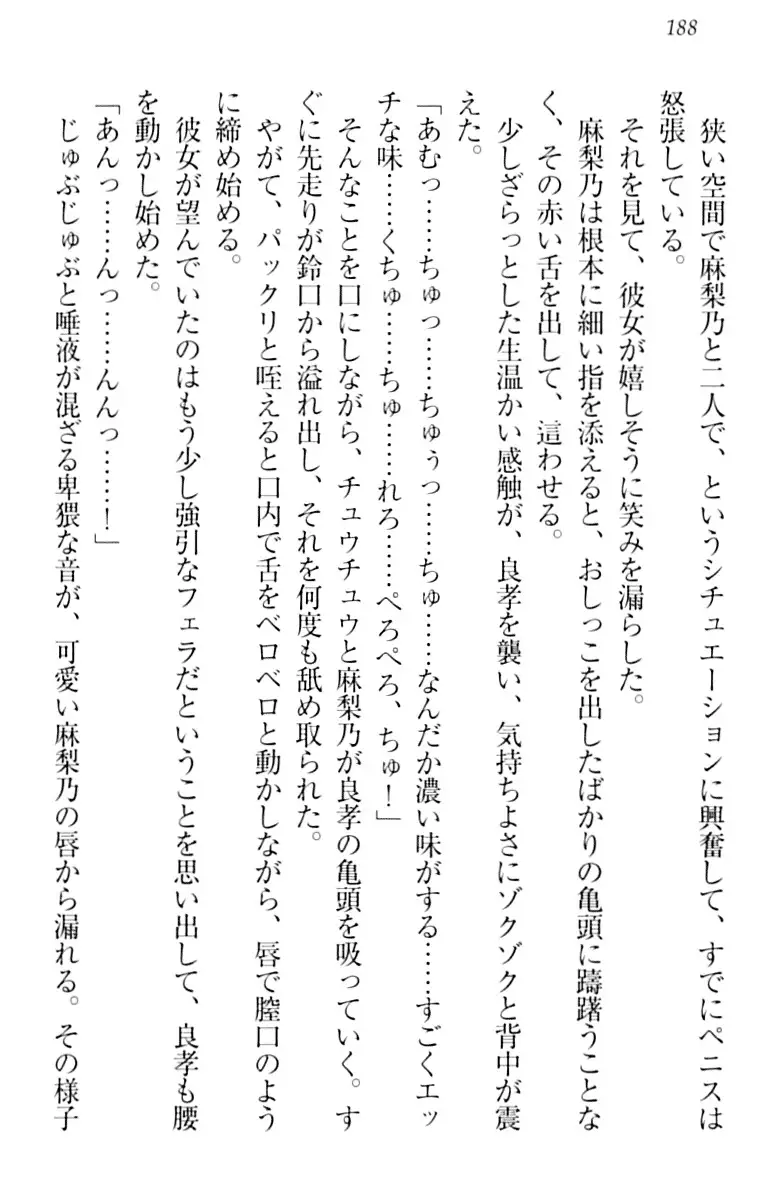 188
狭い空間で麻梨乃と二人で、というシチュエーションに興奮して、すでにペニスは
怒張している。
それを見て、彼女が嬉しそうに笑みを漏らした。
麻梨乃は根本に細い指を添えると、おしっこを出したばかりの亀頭に躊躇うことな
く、その赤い舌を出して、這わせる。
少しざらっとした生温かい感触が、良孝を襲い、気持ちよさにゾクゾクと背中が震
えた。
「あむっ……ちゅっ……ちゅぅっ……ちゅ……なんだか濃い味がする……すごくエッ
チな味……くちゅ……ちゅ……れろ……ぺろぺろ、ちゅ！」
そんなことを口にしながら、チュウチュウと麻梨乃が良孝の亀頭を吸っていく。す
ぐに先走りが鈴口から溢れ出し、それを何度も舐め取られた。
やがて、パックリと咥えると口内で舌をベロベロと動かしながら、唇で膣口のよう
に締め始める。
彼女が望んでいたのはもう少し強引なフェラだということを思い出して、良孝も腰
を動かし始めた。
「あんっ……んっ……んんっ……！」
じゅぶじゅぶと唾液が混ざる卑猥な音が、可愛い麻梨乃の唇から漏れる。その様子